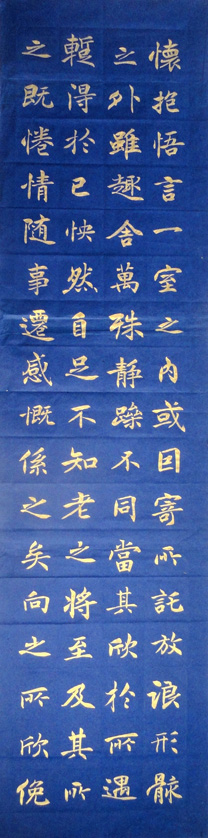 懷抱悟言一室之內或因寄所託放浪形骸
之外雖趣舍萬殊静躁不同當其欣於所遇
蹔得於己怏然自足不知老之將至及其所
之既惓情随事遷感慨係之矣向之所欣俛